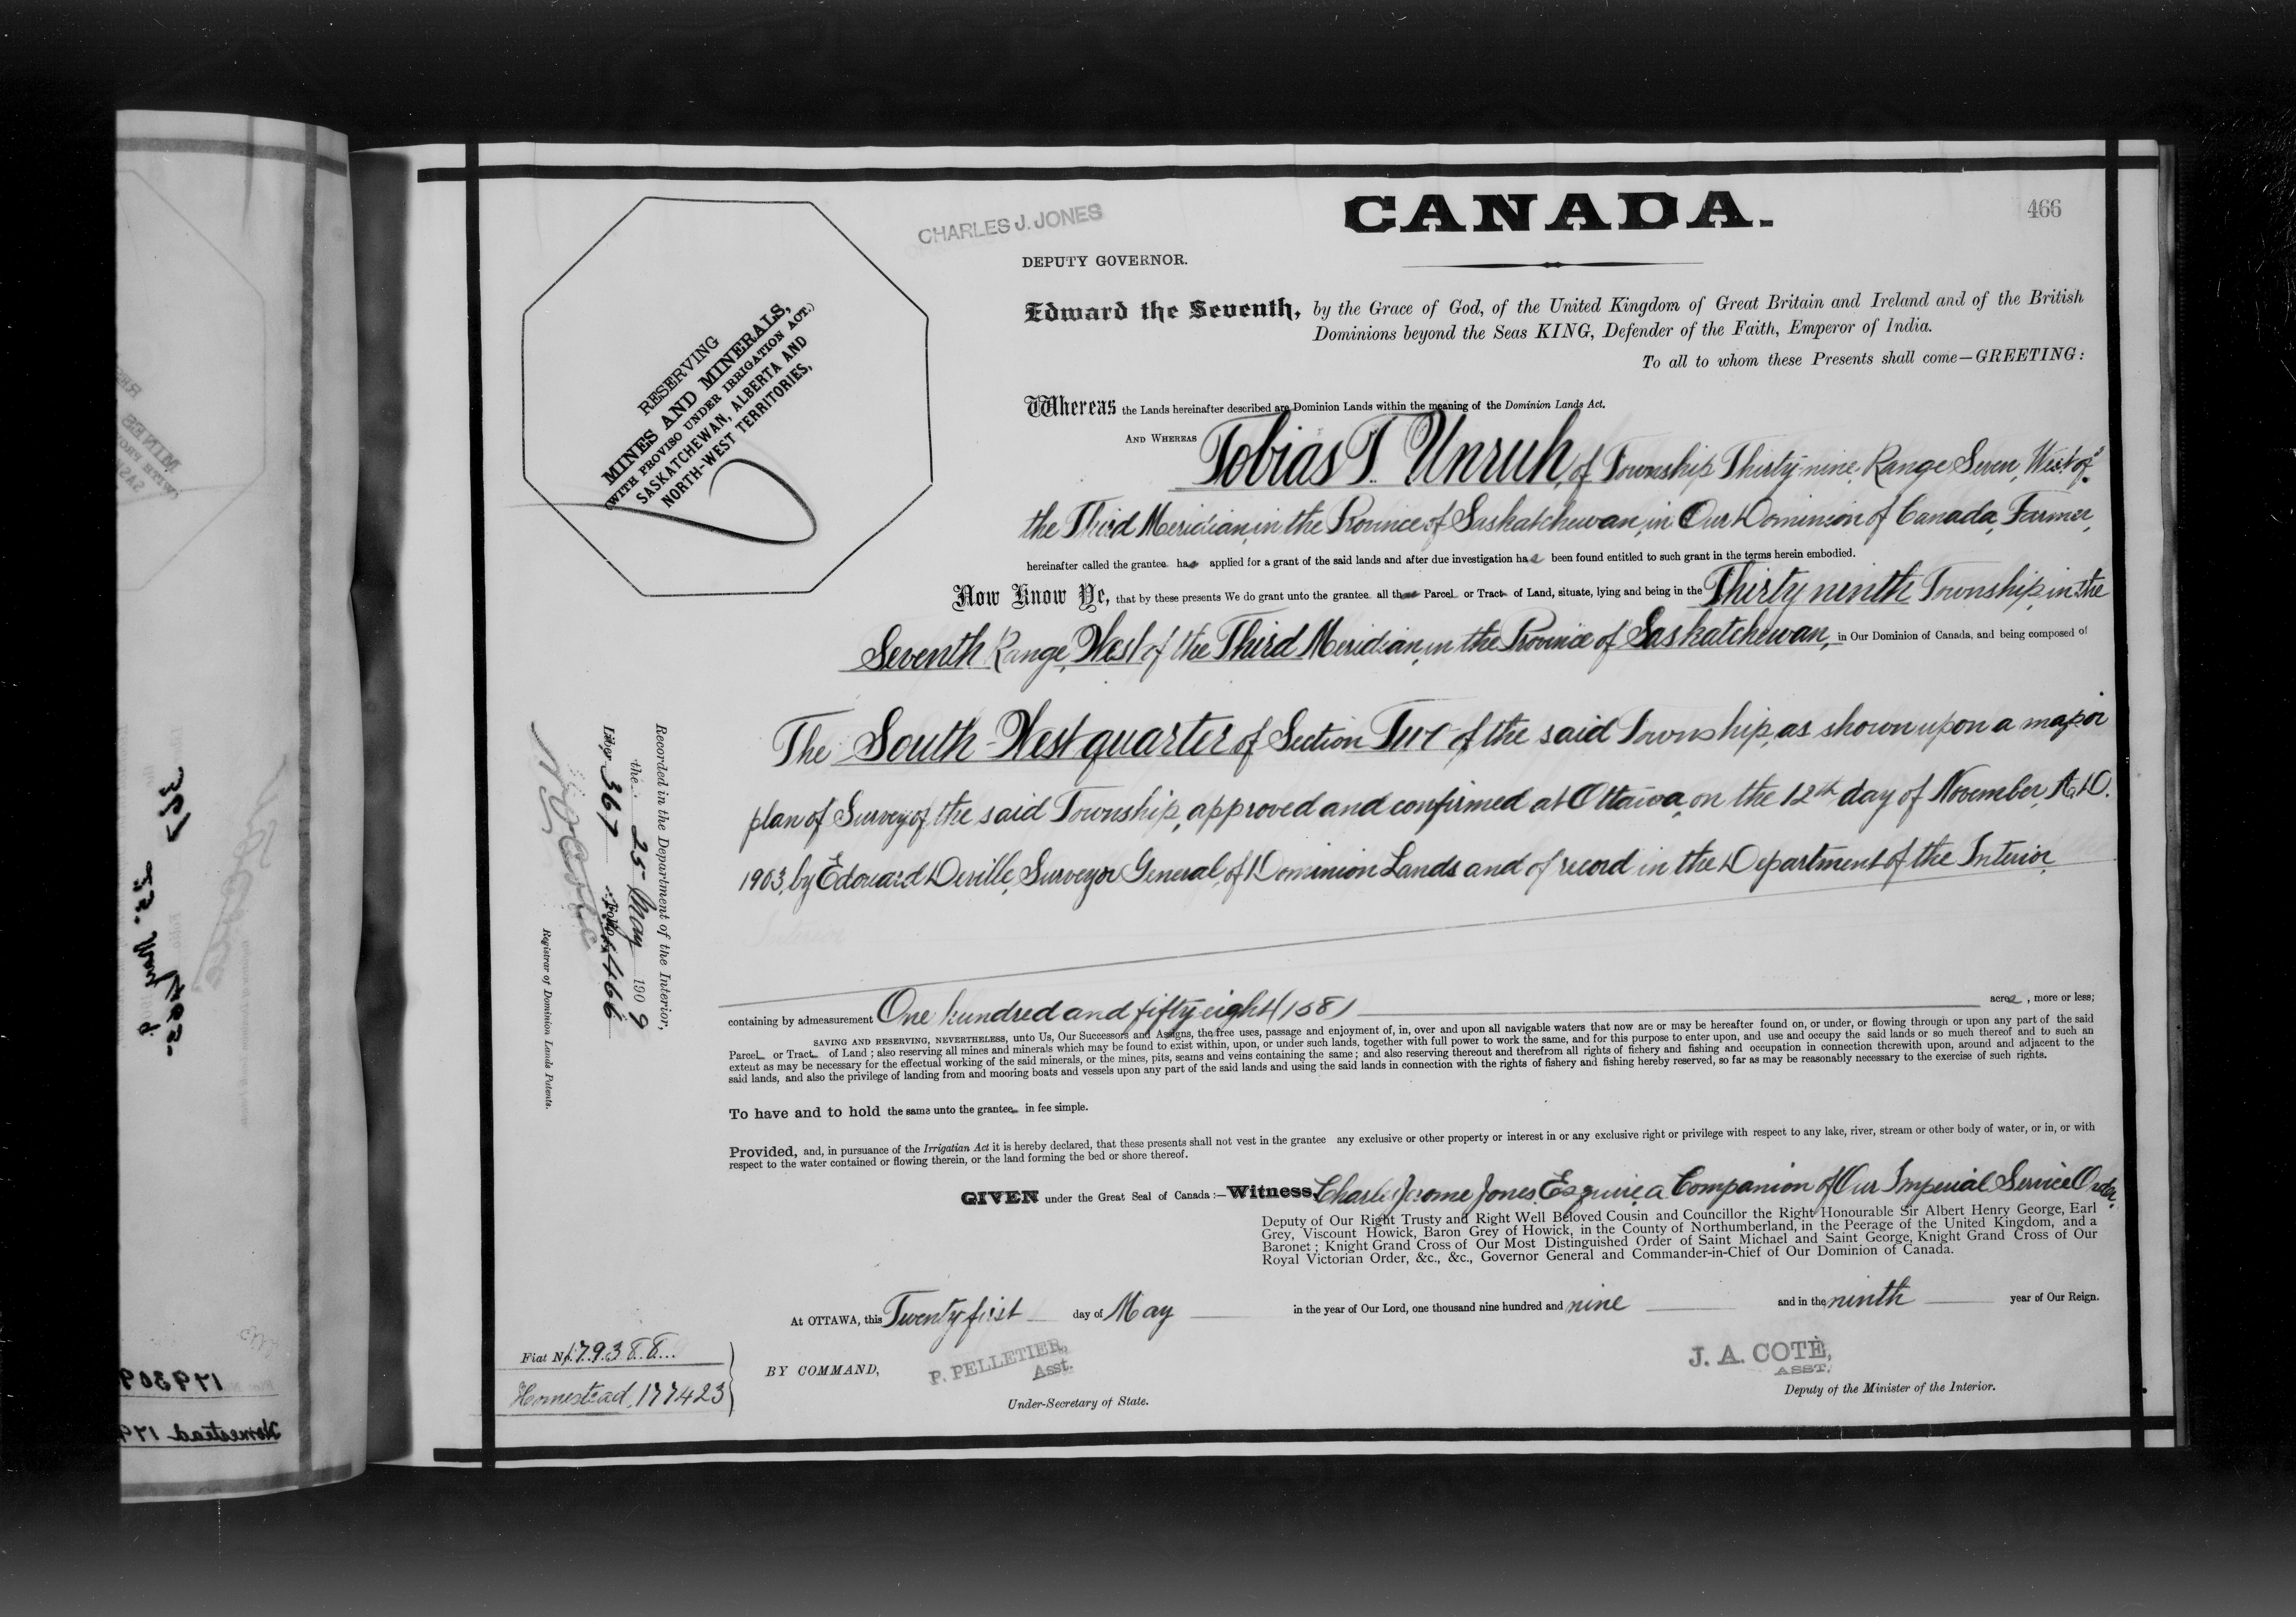 CANADA.
466
CHARLES J. JONES
DEPUTY GOVERNOR.
RESERVING
MINES AND MINERALS,
(WITH PROVISO UNDER IRRIGATION ACT.)
SASKATCHEWAN, ALBERTA AND
NORTH-WEST TERRITORIES,
Edward the Seventh, by the Grace of God, of the United Kingdom of Great Britain and Ireland and of the British
Dominions beyond the Seas KING, Defender of the Faith, Emperor of India.
To all to whom these Presents shall come—GREETING:
Whereas the Lands hereinafter described are Dominion Lands within the meaning of the Dominion Lands Act.
AND WHEREAS Tobias T. Unruh, of Township Thirty-nine, Range Seven, West of
the Third Meridian, in the Province of Saskatchewan, in Our Dominion of Canada, Farmer,
hereinafter called the grantee has applied for a grant of the said lands and after due investigation has been found entitled to such grant in the terms herein embodied.
Now Know Ye, that by these presents We do grant unto the grantee all that Parcel or Tract of Land, situate, lying and being in the Thirty ninth Township, in the
Seventh Range, West of the Third Meridian, in the Province of Saskatchewan, in Our Dominion of Canada, and being composed of
The South-West quarter of Section of the said Township, as shown upon a map or
plan of Survey of the said Township, approved and confirmed at Ottawa, on the 12th day of November, A.D.
1903, by Edouard Deville, Surveyor General of Dominion Lands and of record in the Department of the Interior
containing by admeasurement One hundred and fifty eight (158) acres, more or less;
SAVING AND RESERVING, NEVERTHELESS, unto Us, Our Successors and Assigns, the free uses, passage and enjoyment of, in, over and upon all navigable waters that now are or may be hereafter found on, or under, or flowing through or upon any part of the said
Parcel or Tract of Land; also reserving all mines and minerals which may be found to exist within, upon, or under such lands, together with full power to work the same, and for this purpose to enter upon, and use and occupy the said lands or so much thereof and to such an
extent as may be necessary for the effectual working of the said minerals, or the mines, pits, seams and veins containing the same; and also reserving thereout and therefrom all rights of fishery and fishing and occupation in connection therewith upon, around and adjacent to the
said lands, and also the privilege of landing from and mooring boats and vessels upon any part of the said lands and using the said lands in connection with the rights of fishery and fishing hereby reserved, so far as may be reasonably necessary to the exercise of such rights.
To have and to hold the same unto the grantee in fee simple.
Provided, and, in pursuance of the Irrigation Act it is hereby declared, that these presents shall not vest in the grantee any exclusive or other property or interest in or any exclusive right or privilege with respect to any lake, river, stream or other body of water, or in, or with
respect to the water contained or flowing therein, or the land forming the bed or shore thereof.
GIVEN under the Great Seal of Canada:—Witness, Charles Jerome Jones, Esquire, a Companion of Our Imperial Service Order,
Deputy of Our Right Trusty and Right Well Beloved Cousin and Councillor the Right Honourable Sir Albert Henry George, Earl
Grey, Viscount Howick, Baron Grey of Howick, in the County of Northumberland, in the Peerage of the United Kingdom, and a
Baronet; Knight Grand Cross of Our Most Distinguished Order of Saint Michael and Saint George, Knight Grand Cross of Our
Royal Victorian Order, &c., &c., Governor General and Commander-in-Chief of Our Dominion of Canada.
AT OTTAWA, this Twenty first day of May in the year of Our Lord, one thousand nine hundred and nine and in the ninth year of Our Reign.
BY COMMAND,
P. PELLETIER,
Asst.
Under-Secretary of State.
J. A. COTÉ,
ASST.
Deputy of the Minister of the Interior.
Recorded in the Department of the Interior,
the 25 May 1909
Liber 367 Folio 466
Registrar of Dominion Lands Patents.
Fiat No. 179388
Homestead, 177423